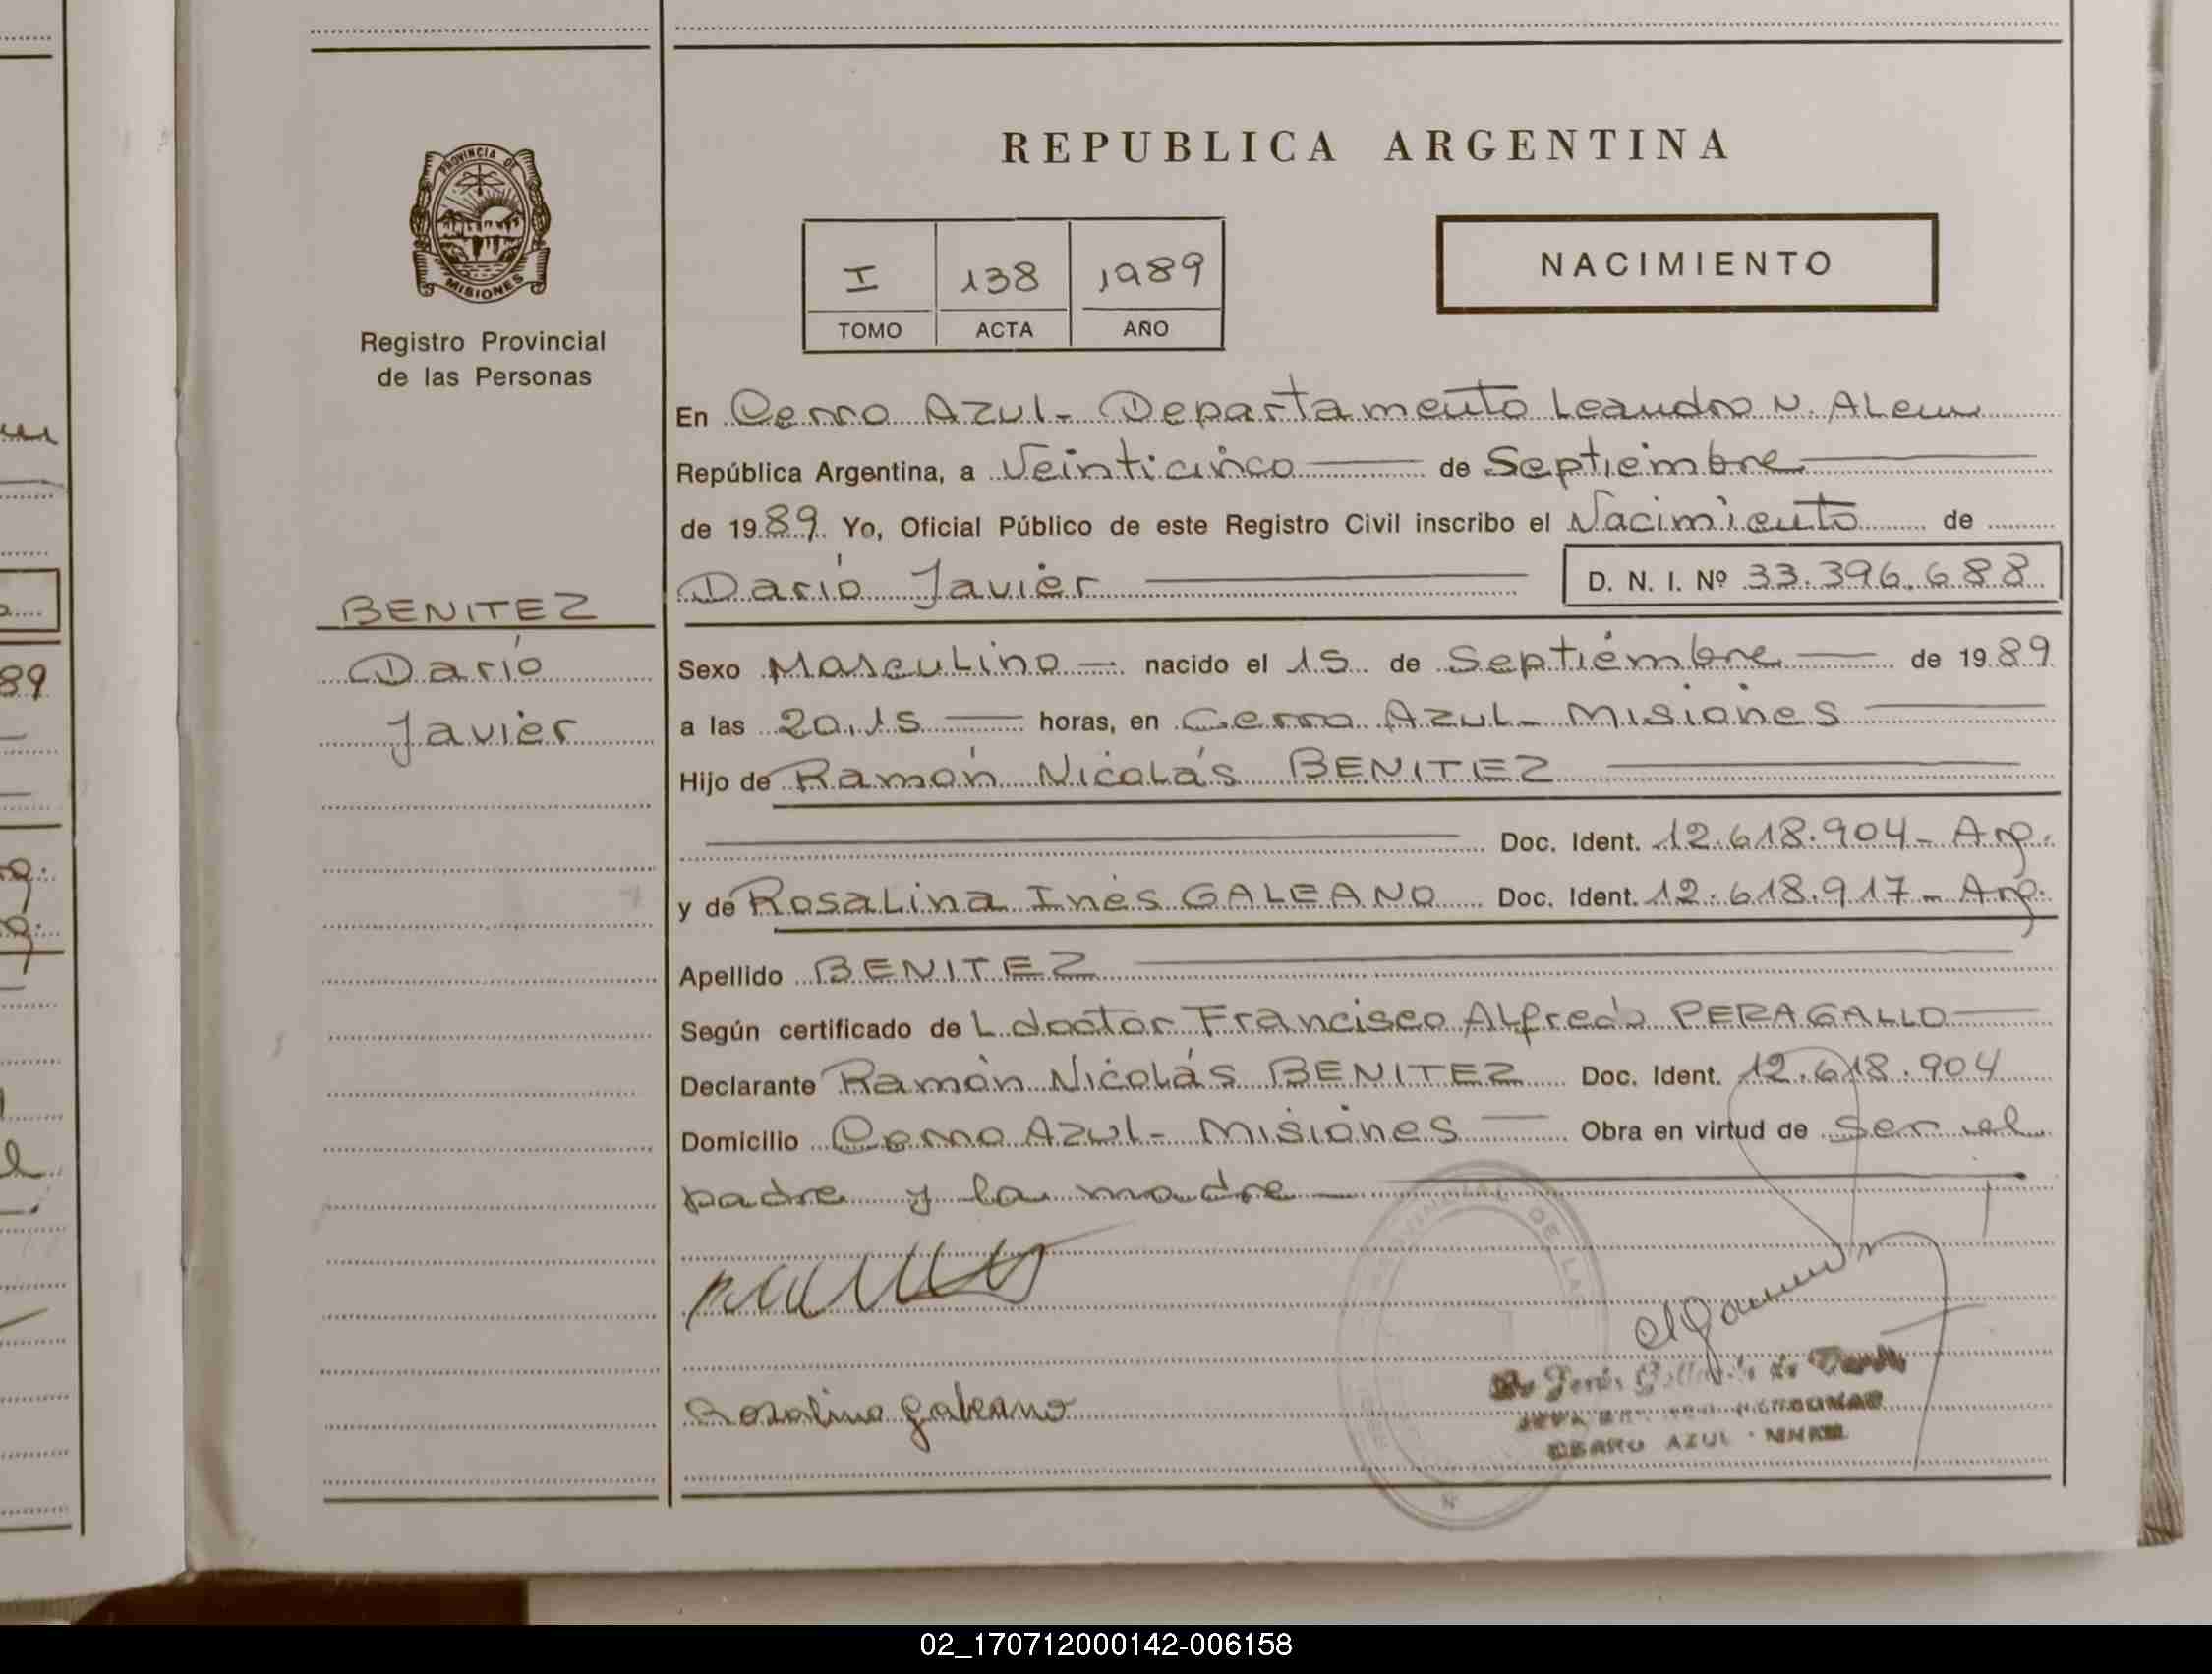 REPUBLICA ARGENTINA
PROVINCIA DE
MISIONES
Registro Provincial
de las Personas
I 138 1989
TOMO ACTA AÑO
NACIMIENTO
En Cerro Azul - Departamento Leandro N. Alem
República Argentina, a Veinticinco de Septiembre
de 1989. Yo, Oficial Público de este Registro Civil inscribo el Nacimiento de
Darío Javier D. N. I. Nº 33.396.688
BENITEZ
Darío
Javier
Sexo Masculino - nacido el 15 de Septiembre de 1989
a las 20,15 horas, en Cerro Azul - Misiones
Hijo de Ramón Nicolás BENITEZ
Doc. Ident. 12.618.904 - Arg.
y de Rosalina Inés GALEANO Doc. Ident. 12.618.917 - Arg.
Apellido BENITEZ
Según certificado de L doctor Francisco Alfredo PERAGALLO
Declarante Ramón Nicolás BENITEZ Doc. Ident. 12.618.904
Domicilio Cerro Azul - Misiones Obra en virtud de ser el
padre y la madre
Rosalina Galeano
CERRO AZUL
89
02_170712000142-006158